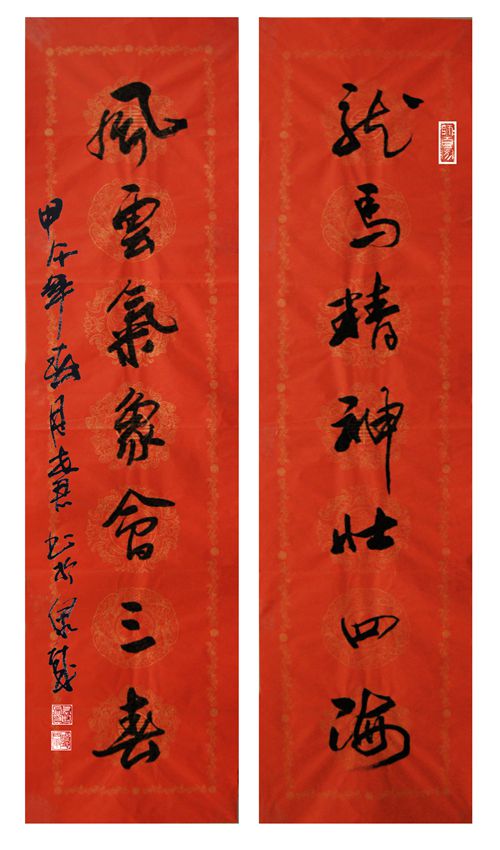 龍馬精神壯四海
風雲氣象會三春
甲午年春月